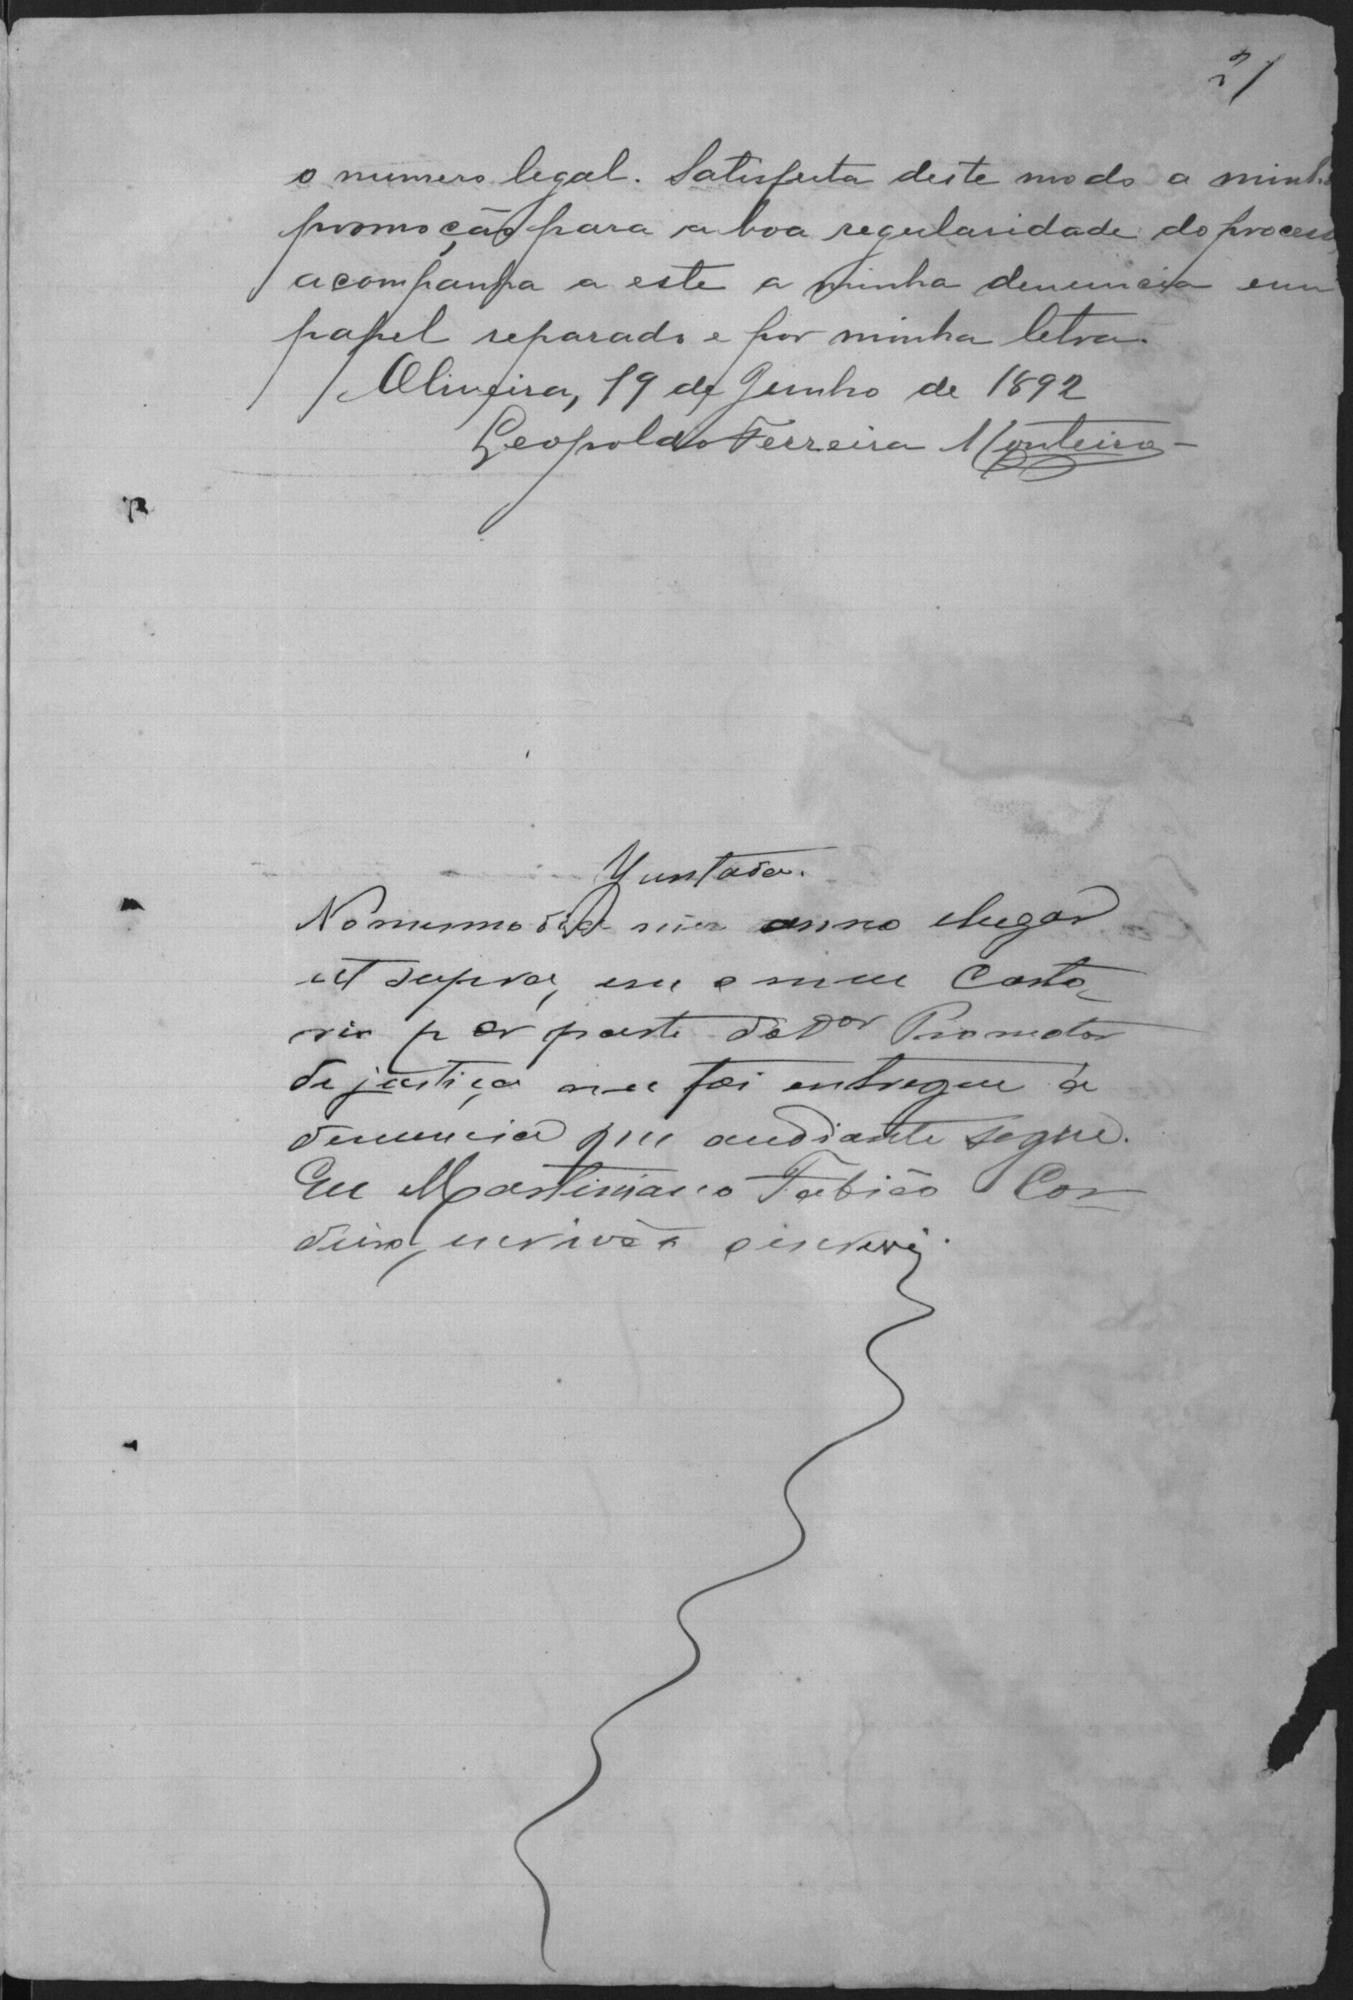 21
o numero legal. Satisfeita deste modo a minha
promoção para a boa regularidade do processo
acompanha a este a minha denuncia em
papel separado e por minha letra.
Oliveira, 19 de Junho de 1892
Leopoldo Ferreira Monteiro
Juntada.
No mesmo dia mez anno e lugar
ut supra, em o meu Carto-
rio por parte do Dor Promotor
de justiça me foi entregue a
denuncia que andiante segue.
Eu Martiniano Fabião Cor-
deiro, escrivão o escrevi.